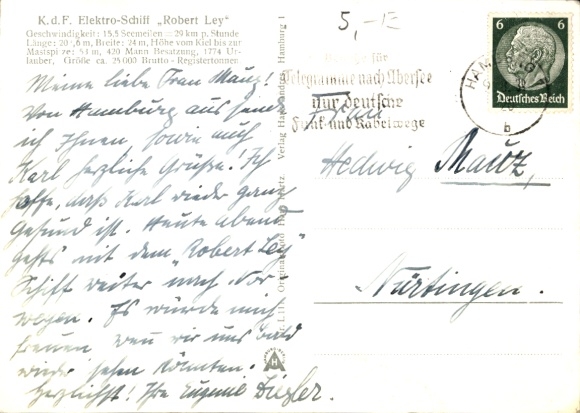 K. d. F. Elektro-Schiff „Robert Ley"
Geschwindigkeit: 15,5 Seemeilen = 29 km p. Stunde
Länge: 20,6 m, Breite: 24 m, Höhe vom Kiel bis zur
Mastspitze: 53 m, 420 Mann Besatzung, 1774 Ur-
lauber, Größe ca. 25 000 Brutto-Registertonnen.
Meine liebe Frau Mauz!
Von Hamburg aus sende
ich Ihnen, sowie auch
Karl herzliche Grüße! Ich
hoffe, daß Karl wieder ganz
gesund ist. Heute abend
gehts mit dem „Robert Ley"
Schiff weiter nach Nor
wegen. Es würde mich
freuen, wenn wir uns bald
wieder sehen könnten.
Herzlichst! Ihre Eugenie
Verlag Hans Andres, Hamburg 1
Hans Hartz
H
5,-
für
Telegramme nach Übersee
Nur deutsche
Funk- und Kabelwege
HAM
b
6 6
Deutsches Reich
Frau
Hedwig Mauz,
Nürtingen.